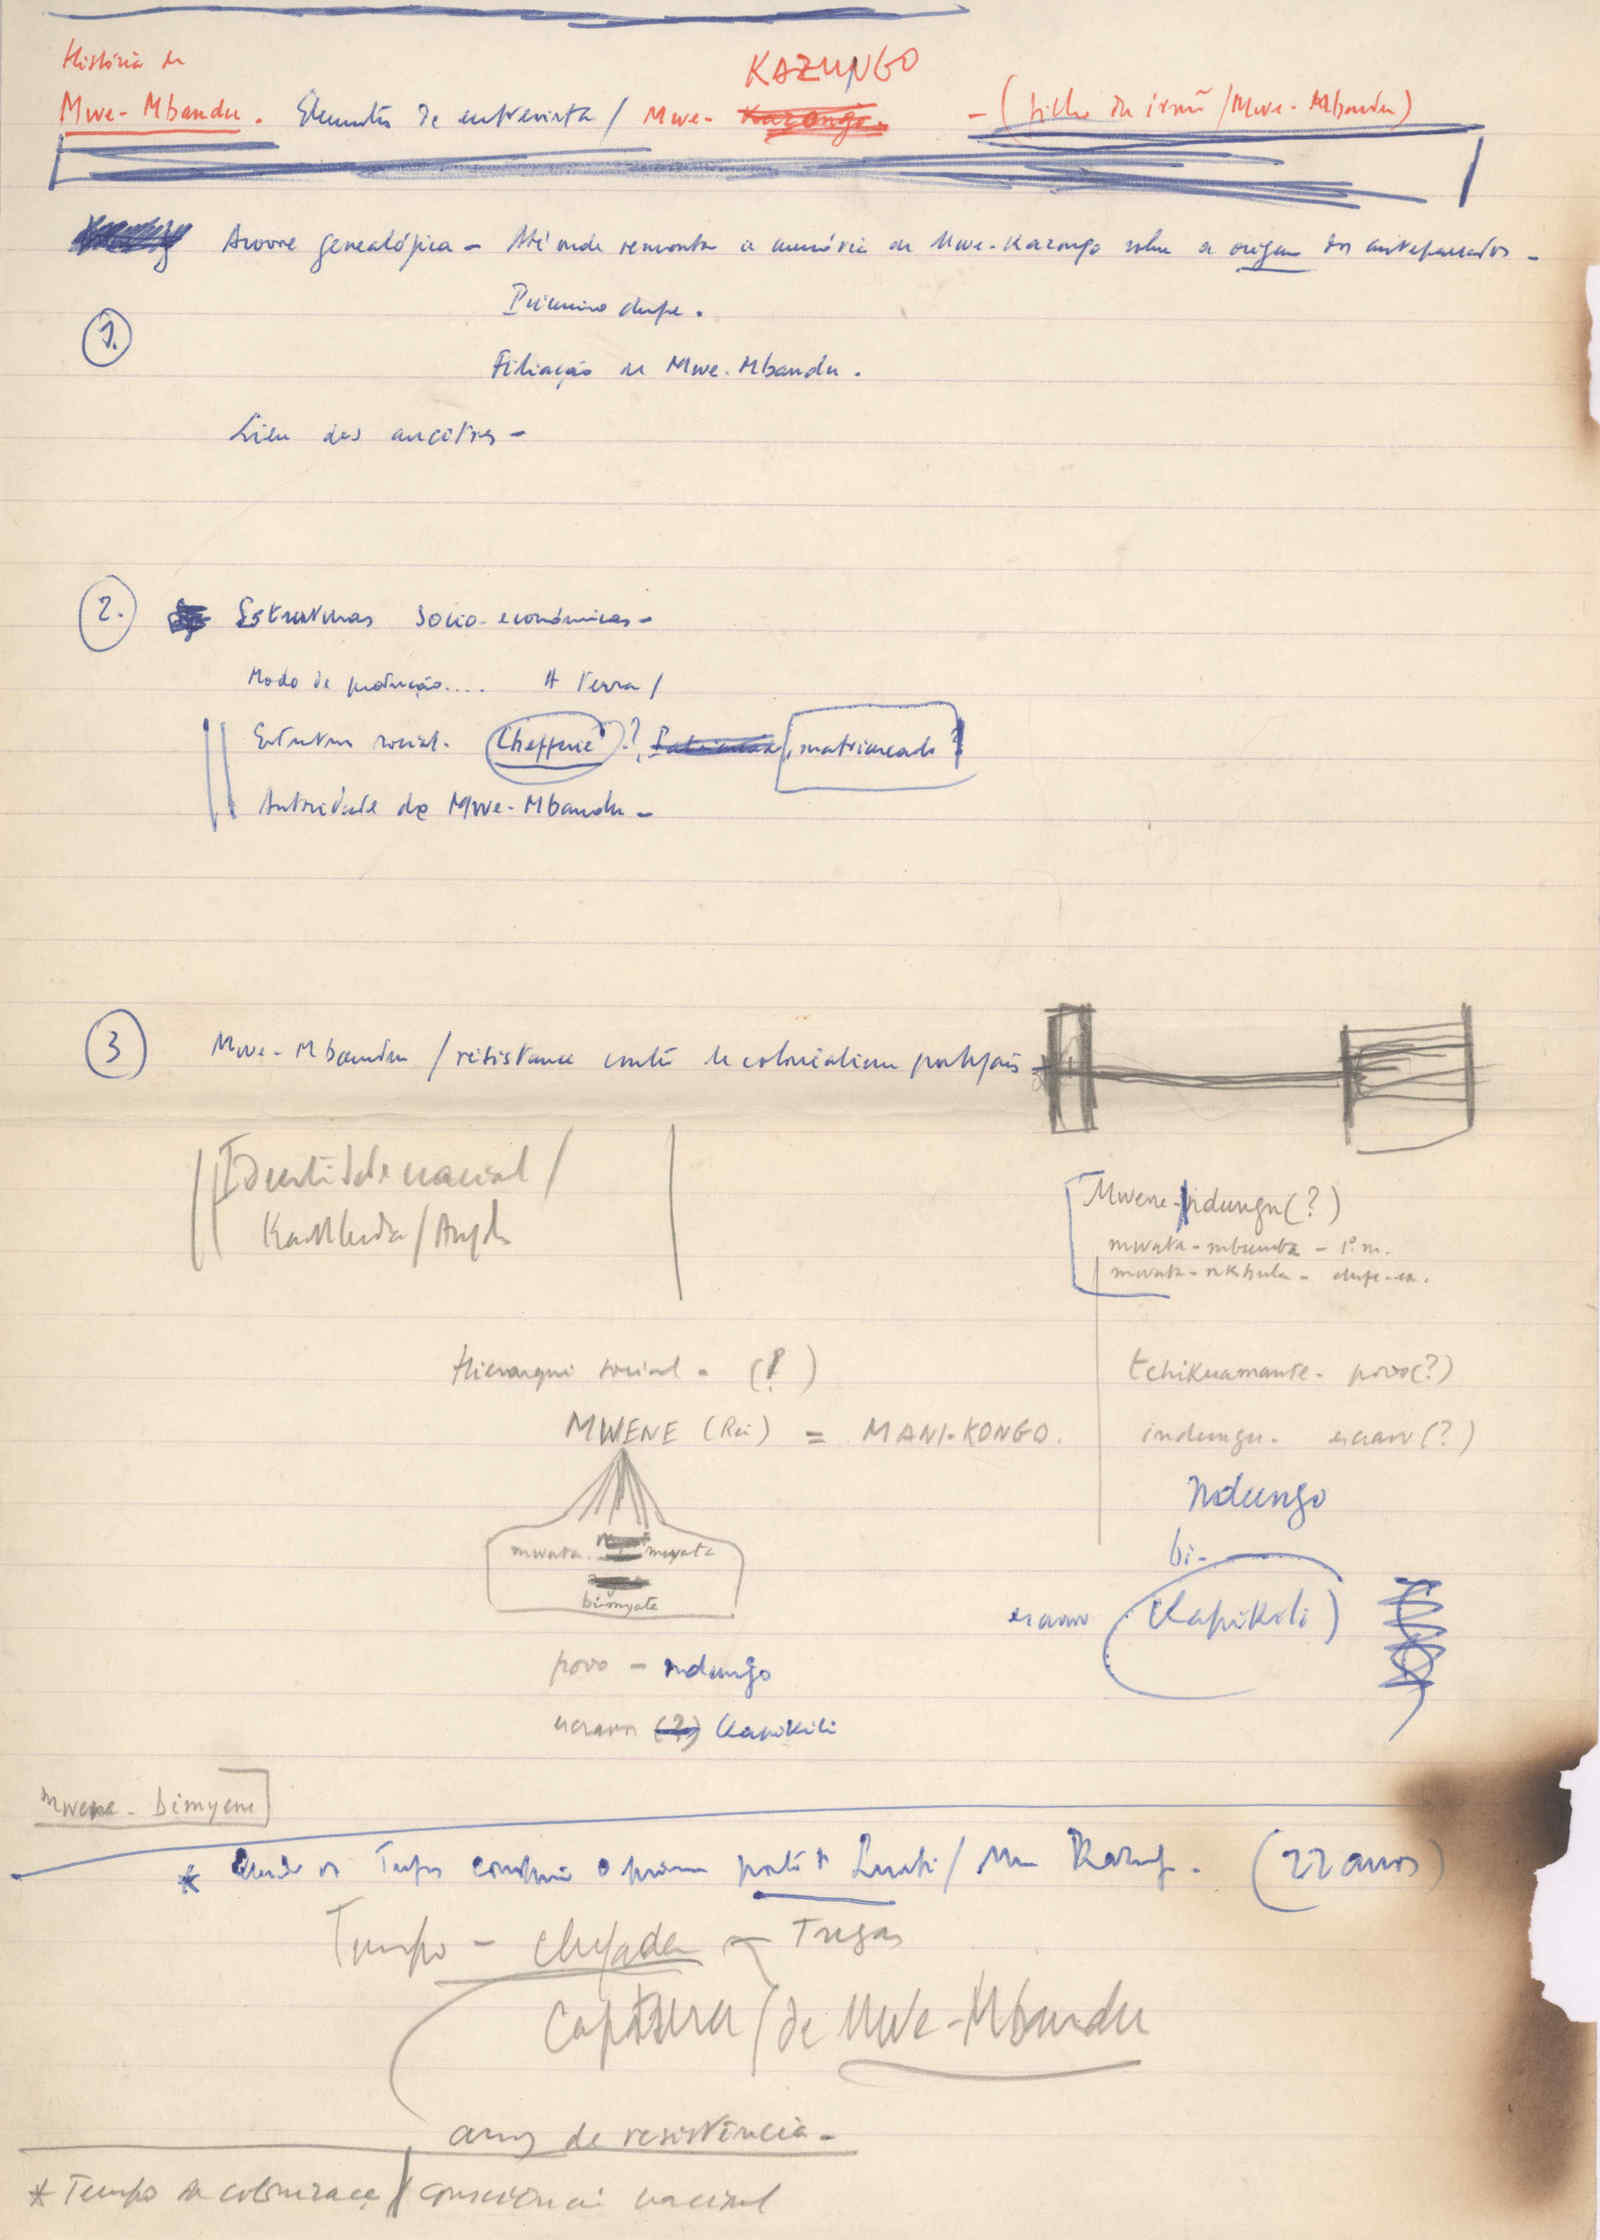 História de
KAZUNGO
Mwe-Mbandu. Elementos de entrevista / Mwe- Kazongo - (filho da irmã / Mwe-Mbandu)
Arvore genealógica - Até onde remonta a memória de Mwe-Kazongo sobre a origem dos antepassados -
Primeiro chefe.
1.
Filiação de Mwe-Mbandu.
Lieu des ancêtres -
2. Estruturas socio-económicas -
Modo de produção.... A terra /
Estrutura social. Chefferie ?, matriarcado ?
Autoridade de Mwe-Mbandu -
3 Mwe-Mbandu / résistance contre le colonialisme portugais
Identidade nacional /
Mwene-ndungu (?)
mwata-mbumba - 1º m.
Hierarqui social - (?)
tchikuamante - povo (?)
MWENE (Rei) = MANI-KONGO.
indungu - escravo (?)
Ndungo
mwata. mwata
bi-
escravo Kapikili)
povo - ndungo
escravo (?) Kapikili
mwene - bimyene
* os Tugas o primeiro posto / (22 anos)
Tempo - chegada - Tugas
Captura / de Mwe-Mbandu
anos de resistência -
* Tempo da colonização / consciência nacional